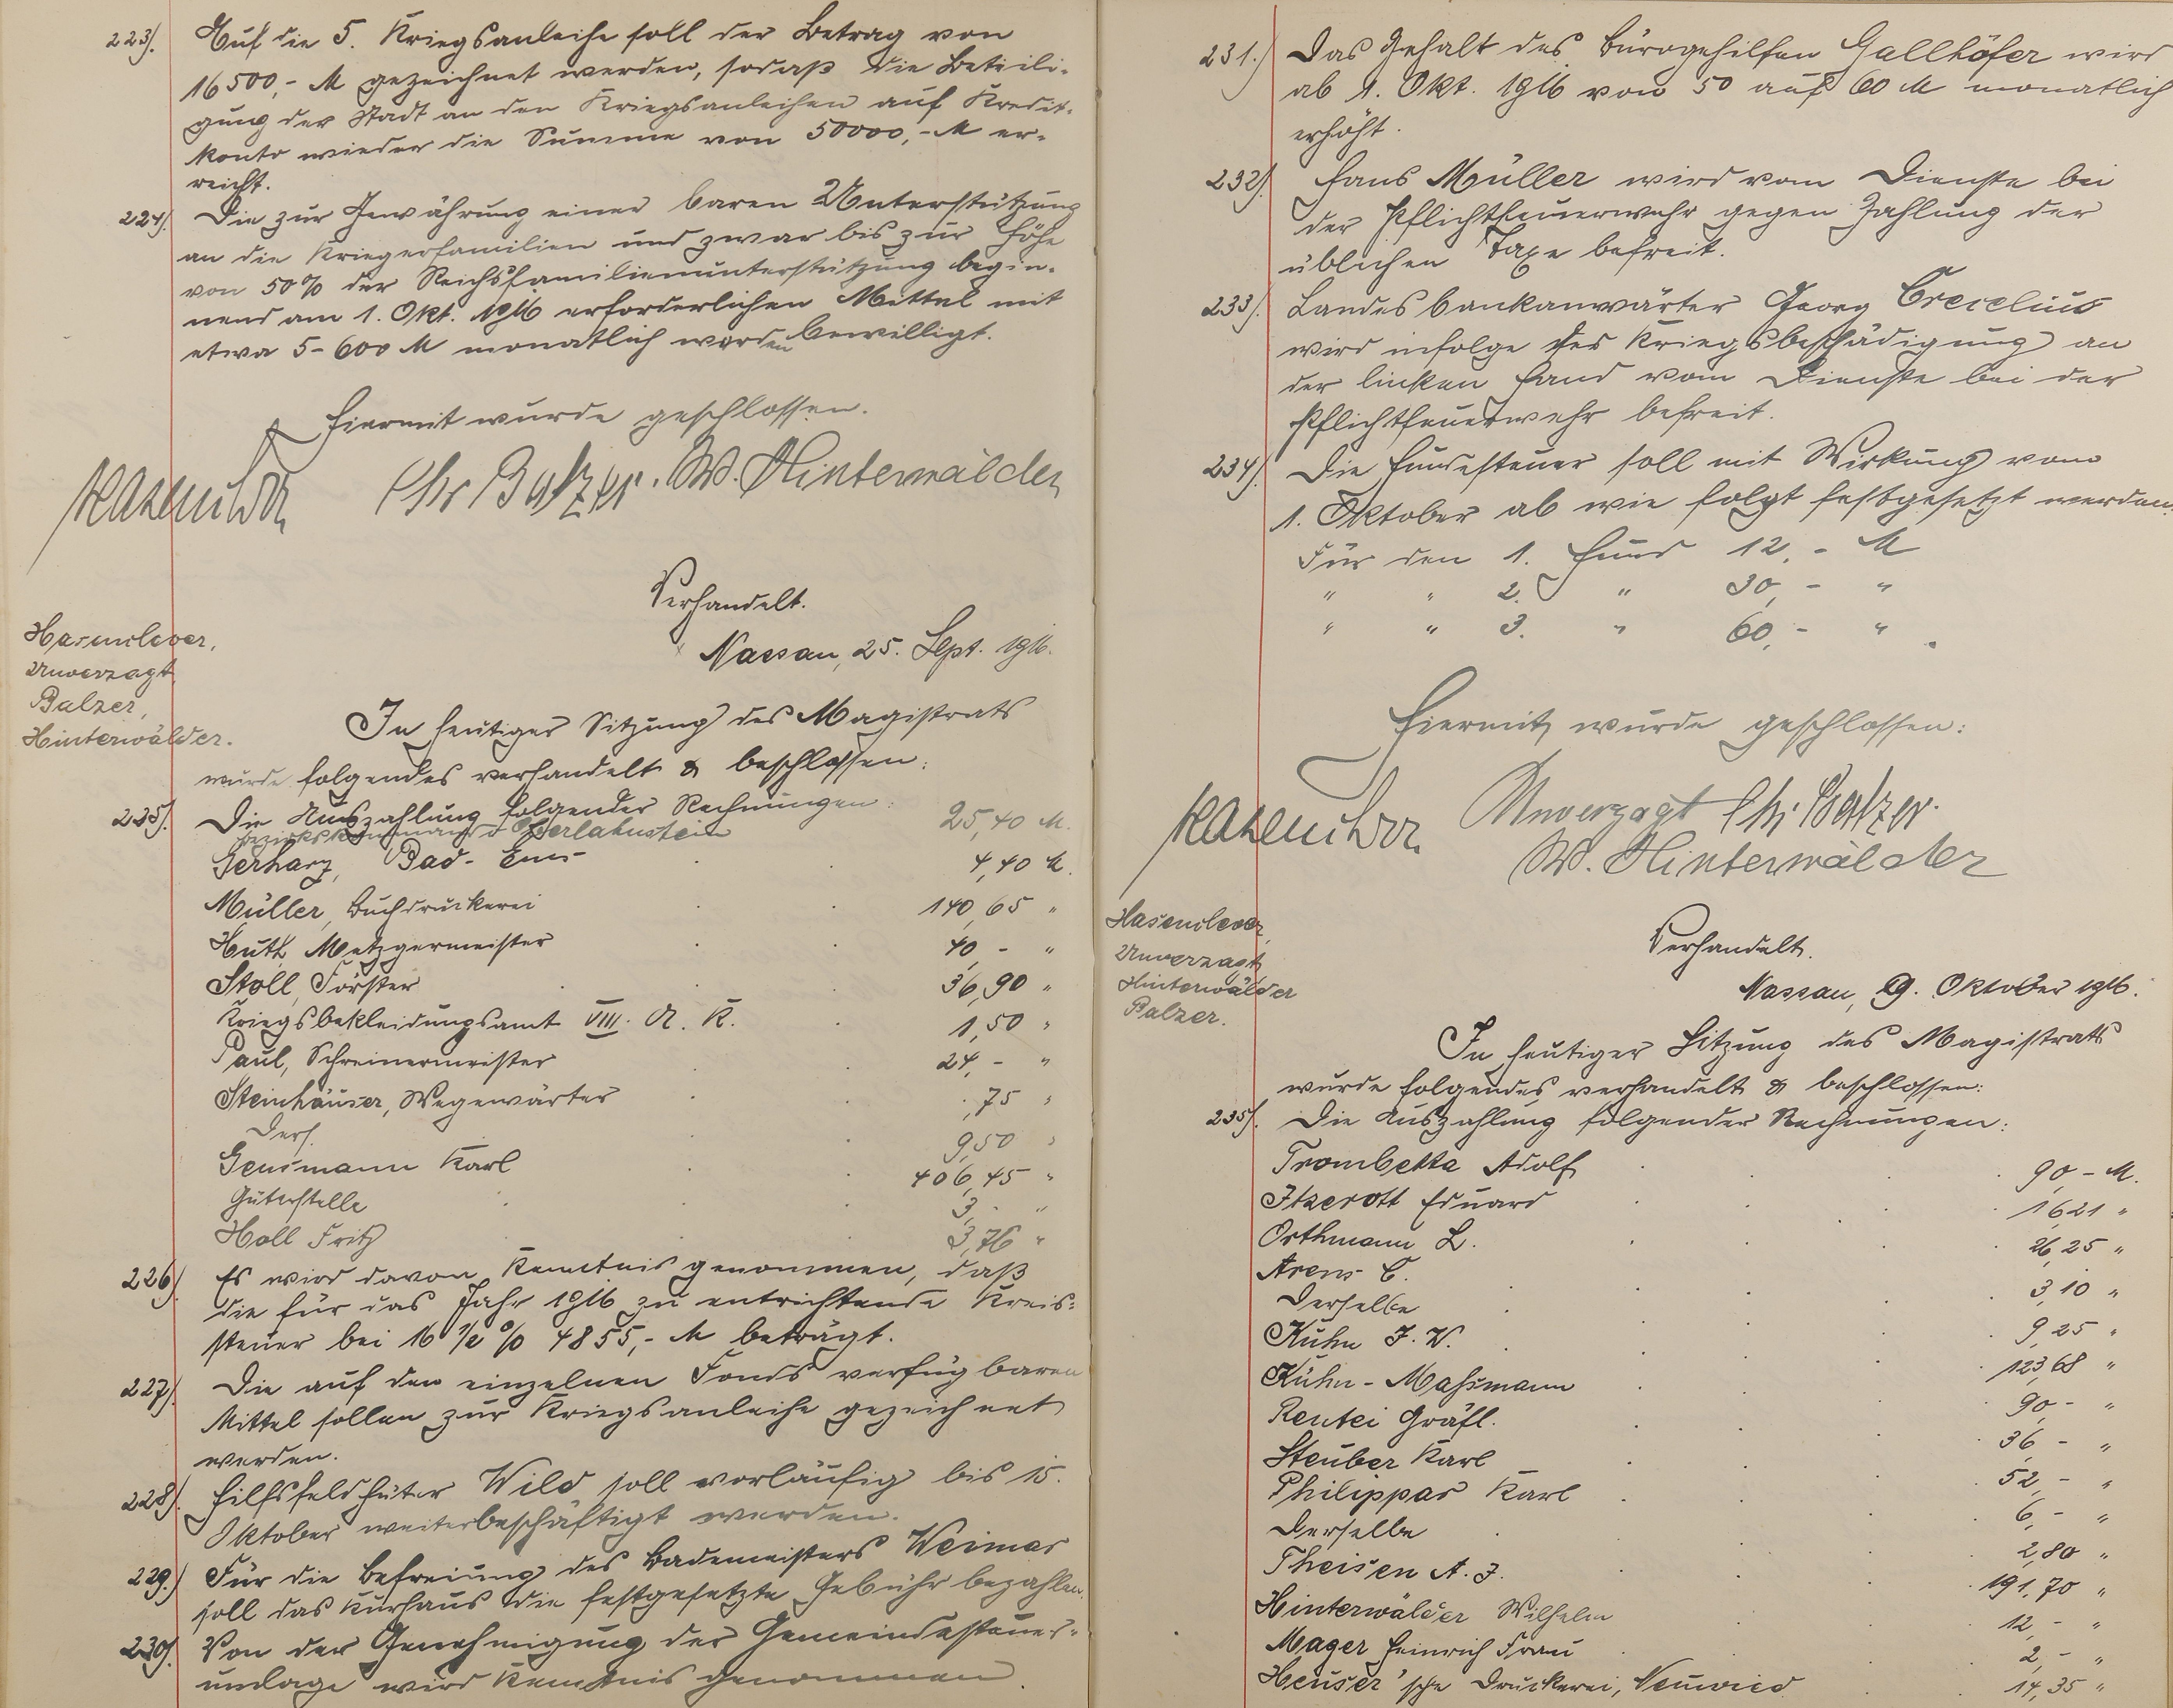 223). Auf die 5. Kriegsanleihe soll der Betrag von
16500,- M gezeichnet werden, sodaß die Beteili-
gung der Stadt an den Kriegsanleihen auf Kredit-
konto wieder die Summe von 50000,- M er-
reicht.
224). Die zur Gewährung einer baren Unterstützung
an die Kriegerfamilien und zwar bis zur Höhe
von 50% der Reichsfamilienunterstützung begin-
nend am 1. Okt. 1916 erforderlichen Mittel mit
etwa 5-600 M monatlich werden bewilligt.
Hiermit wurde geschlossen.
Hasenclever Chr Balzer. W. Hinterwälder
Verhandelt.
Nassau, 25. Sept. 1916.
Hasenclever,
Unverzagt
Balzer,
Hinterwälder.
In heutiger Sitzung des Magistrats
wurde folgendes verhandelt & beschlossen:
225). Die Auszahlung folgender Rechnungen:
Bezirkskommando Oberlahnstein 25,40 M.
Gerharz, Bad-Ems 4,40 M.
Müller, Buchdruckerei 140,65 "
Huth Metzgermeister 40,- "
Stoll, Förster 36,90 "
Kriegsbekleidungsamt VIII. A. K. 1,50 "
Paul, Schreinermeister 24,- "
Steinhäuser, Wegewärter ,75 "
Ders. 9,50 "
Gensmann Karl 406,45 "
Güterstelle 3,- "
Holl Fritz 3,76 "
226). Es wird davon Kenntnis genommen, daß
die für das Jahr 1916 zu entrichtende Kreis-
steuer bei 16 1/2 % 4855,- M beträgt.
227). Die auf den einzelnen Fonds verfügbaren
Mittel sollen zur Kriegsanleihe gezeichnet
werden.
228). Hilfsfeldhüter Wild soll vorläufig bis 15.
Oktober weiterbeschäftigt werden.
229.) Für die Befreiung des Bademeisters Weimar
soll das Kurhaus die festgesetzte Gebühr bezahlen.
230). Von der Genehmigung der Gemeindesteuer-
umlage wird Kenntnis genommen.
231.) Das Gehalt des Bürogehilfen Gallhöfer wird
ab 1. Okt. 1916 von 50 auf 60 M monatlich
erhöht.
232). Hans Müller wird vom Dienste bei
der Pflichtfeuerwehr gegen Zahlung der
üblichen Taxe befreit.
233). Landesbankanwärter Georg Crecelius
wird infolge der Kriegsbeschädigung an
der linken Hand vom Dienste bei der
Pflichtfeuerwehr befreit.
234). Die Hundesteuer soll mit Wirkung vom
1. Oktober ab wie folgt festgesetzt werden:
Für den 1. Hund 12,- M
" " 2. " 30,- "
" " 3. " 60,- ".
Hiermit wurde geschlossen:
Hasenclever Unverzagt Chr. Balzer.
W. Hinterwälder
Hasenclever,
Unverzagt
Hinterwälder
Balzer.
Verhandelt.
Nassau, 9. Oktober 1916.
In heutiger Sitzung des Magistrats
wurde folgendes verhandelt & beschlossen:
235). Die Auszahlung folgender Rechnungen:
Trombetta Adolf 90,- M.
Itzerott Eduard 16 21 "
Orthmann L. 26,25 "
Arens C. 3,10 "
Derselbe 9,25 "
Kuhn J. W. 123,68 "
Kuhn-Maßmann 90,- "
Rentei Gräfl. 36 - "
Steuber Karl 52,- "
Philippar Karl 6,- "
Derselbe 2,80 "
Theisen A. J. 191,70 "
Hinterwälder Wilhelm 12,- "
Mager Heinrich Frau 2,- "
Heuser'sche Druckerei, Neuwied 14,35 "